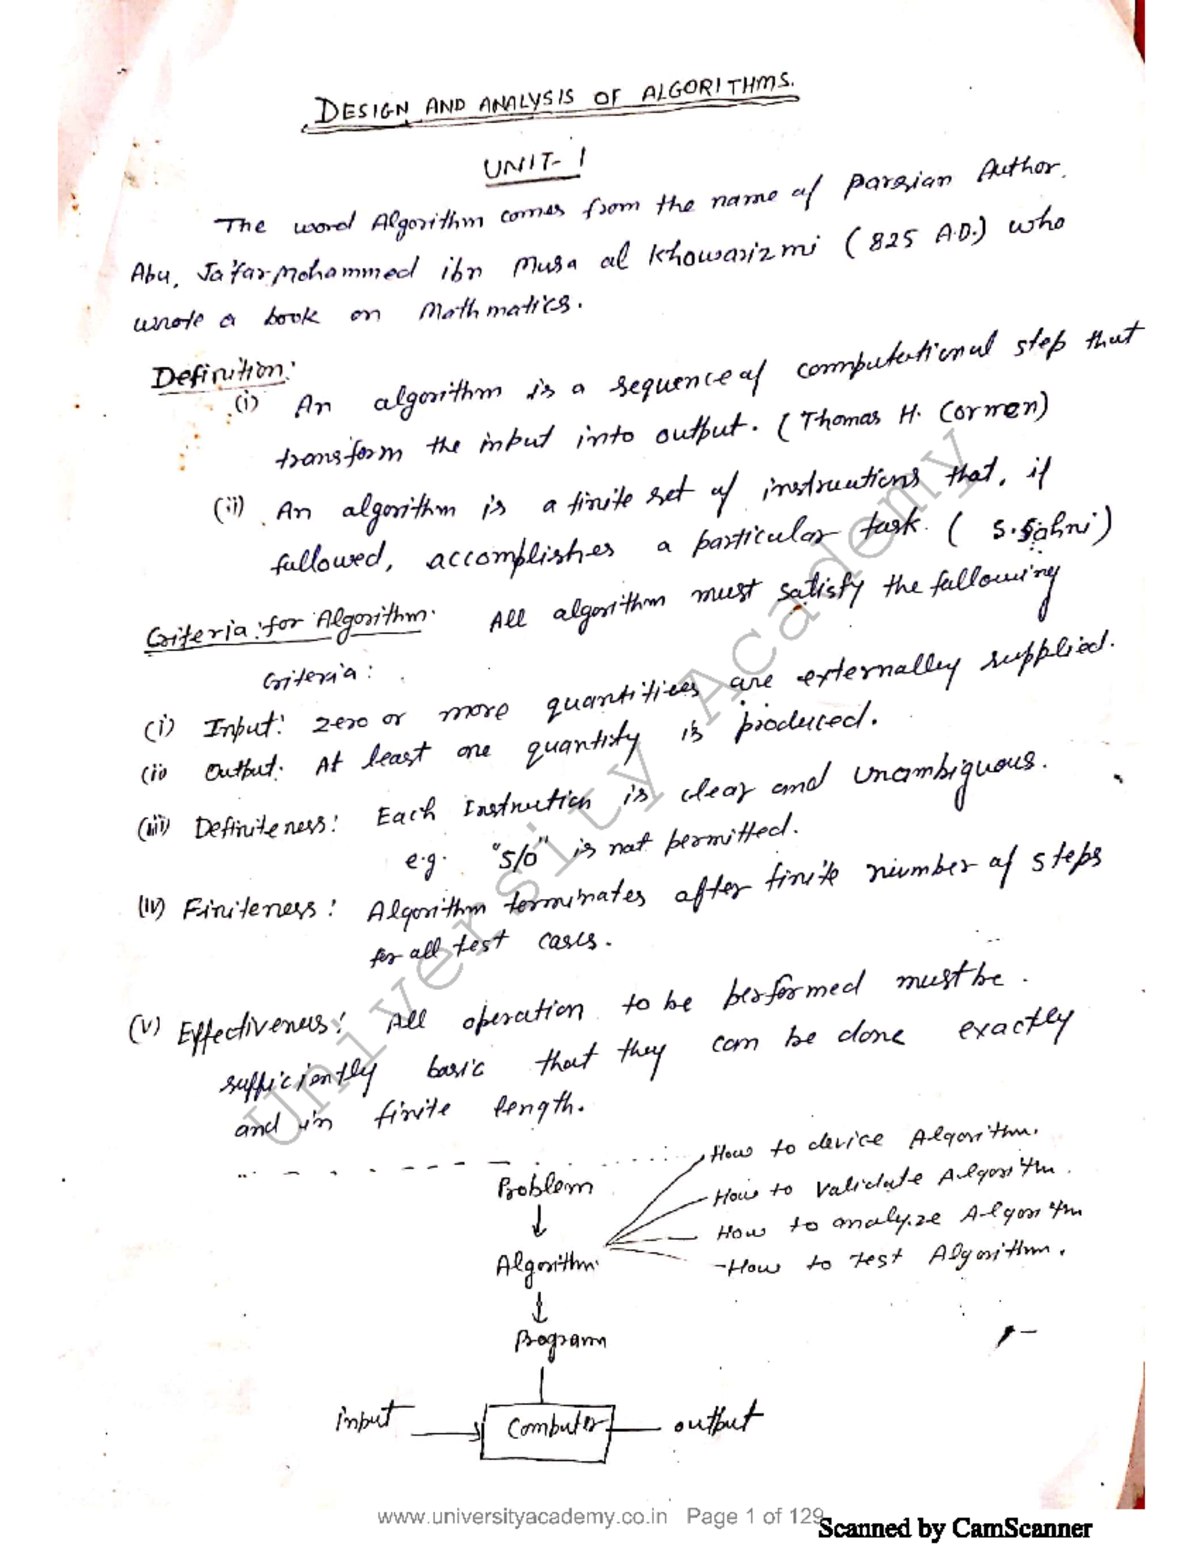 DESIGN AND ANALYSIS OF ALGORITHMS.
UNIT-1
The word Algorithm comes from the name of Parsian Author.
Abu, Ja'far Mohammed ibn Musa al Khowarizmi (825 A.D.) who
wrote a book on Mathmatics.
Definition:
(i) An algorithm is a sequence of computational step that
transform the input into output. (Thomas H. Cormen)
(ii) An algorithm is a finite set of instructions that, if
followed, accomplishes a particular task. (S. Sahni)
Criteria for Algorithm: All algorithm must satisfy the following
Criteria:
(i) Input: Zero or more quantities are externally supplied.
(ii) Output: At least one quantity is produced.
(iii) Definiteness: Each Instruction is clear and unambiguous.
e.g. "5/0" is not permitted.
(iv) Finiteness: Algorithm terminates after finite number of steps
for all test cases.
(v) Effectiveness: All operation to be performed must be
sufficiently basic that they can be done exactly
and in finite length.
How to device Algorithm.
Problem
How to Validate Algorithm.
How to analyze Algorithm
Algorithm
How to test Algorithm.
Program
input
Computer
output
University Academy
www.universityacademy.co.in Page 1 of 129
Scanned by CamScanner